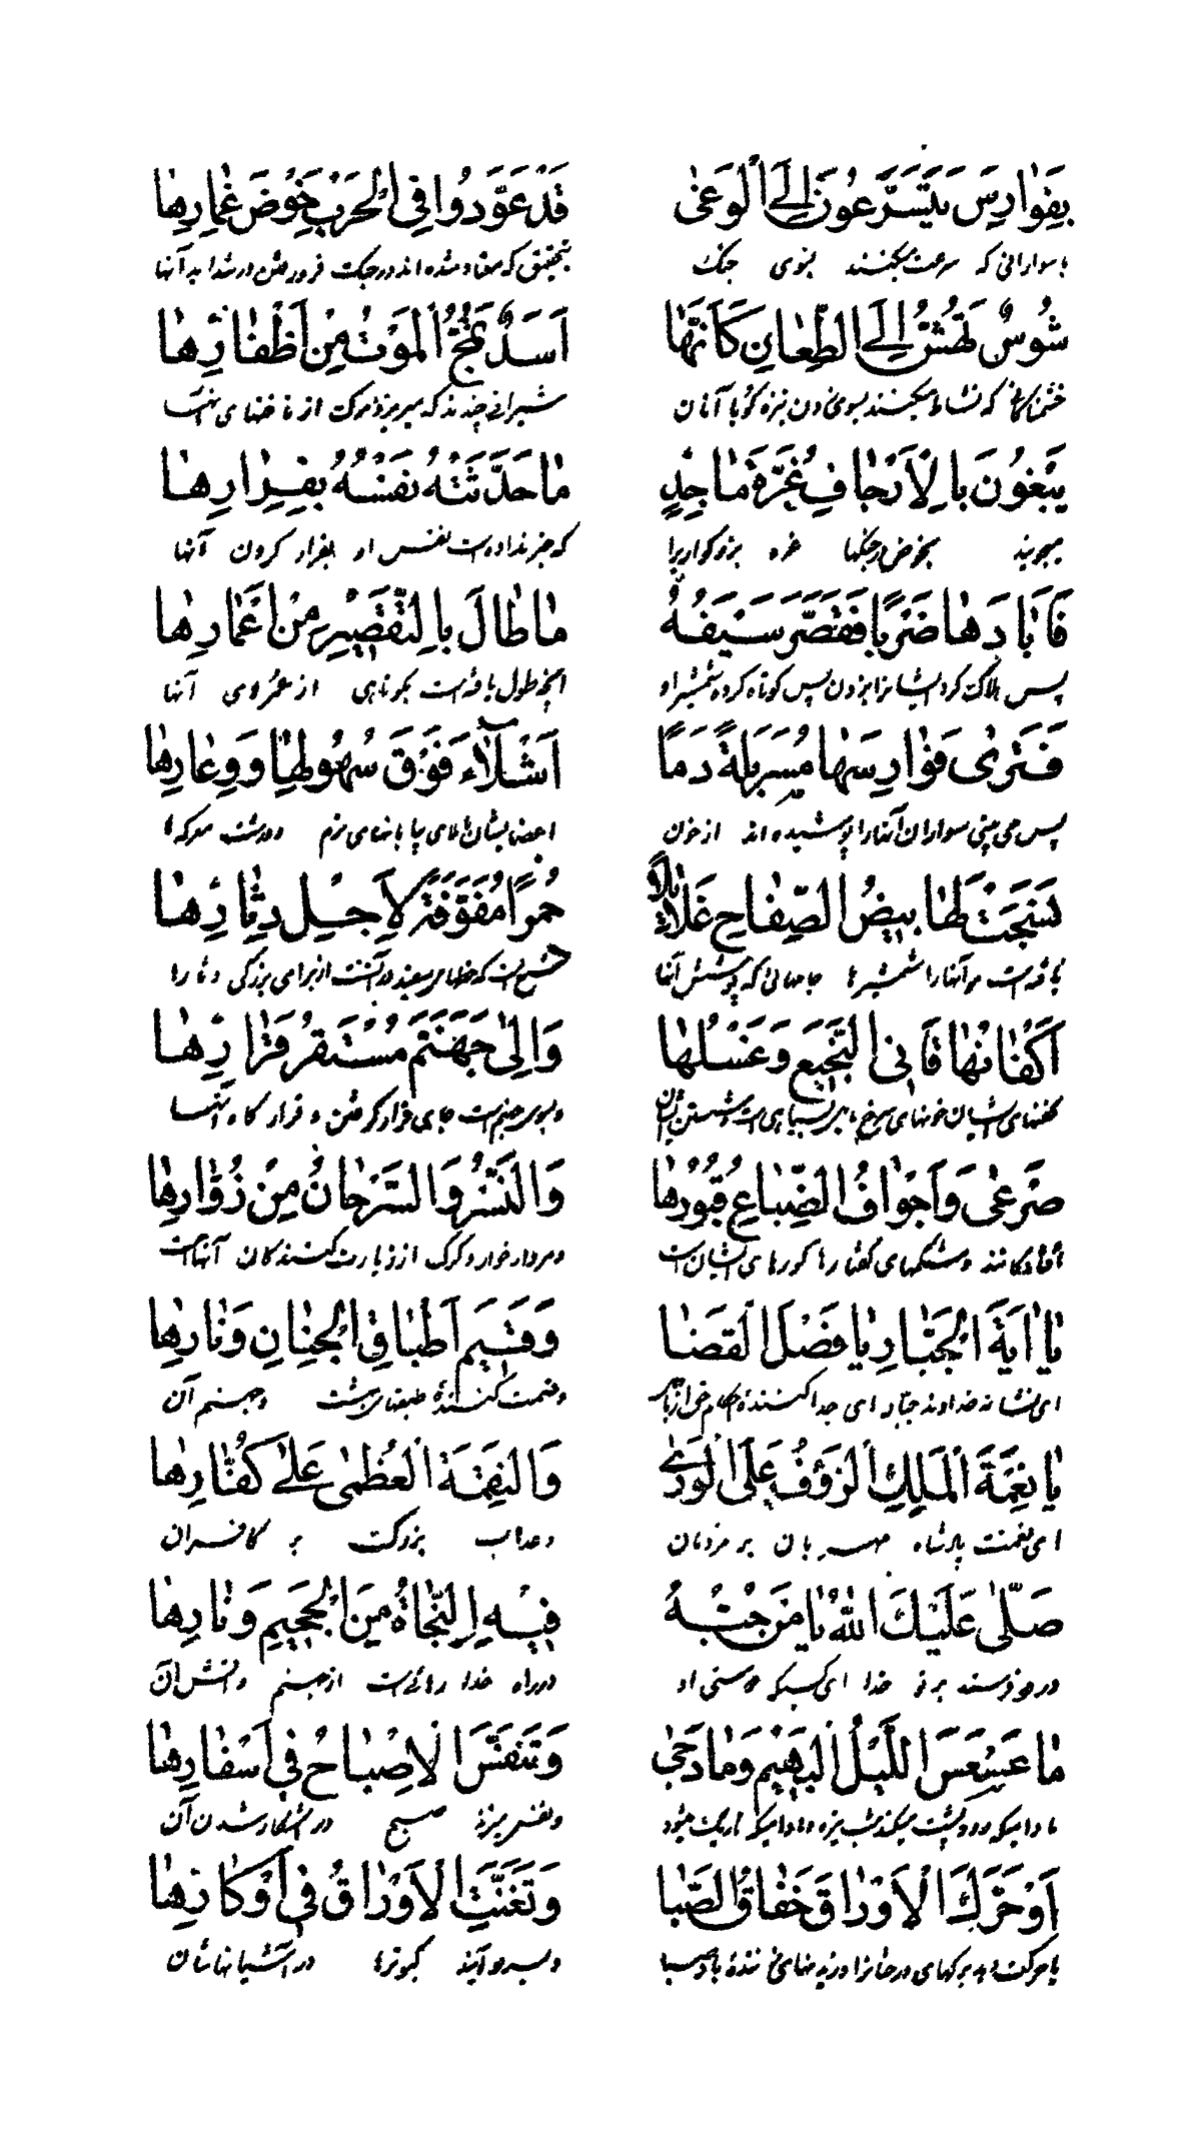 بِفَوارِسَ يَتَسَرَّعُونَ اِلَى الْوَغى قَدْ عَوَّدُوا فِى الْحَرْبِ خَوْضَ غِمارِها
با سوارانی که سرعت میکنند بسوی جنگ بتحقیق که معتاد شده اند در جنگ فرو رفتن در شداید آنها
شُوسٌ تَهُشُّ اِلَى الطِّعانِ كَاَنَّها اُسُدٌ يَمُجُّ الْمَوْتُ مِنْ اَظْفارِها
که نشاط میکنند بسوی زدن نیزه گویا آنان شیرانی چندند که میریزد مرگ از ناخنهای
يَبْغُونَ بِالْاَرْجافِ غُرَّةَ ماجِدٍ ما حَدَّثَتْهُ نَفْسُهُ بِفِرارِها
میجویند غره بزرگواریرا که خبر نداده است نفس او بفرار کردن آنها
فَاَبادَها ضَرْبًا فَقَصَّرَ سَيْفُهُ ما طالَ بِالتَّقْصيرِ مِنْ اَعْمارِها
پس هلاک کرد ایشانرا بزدن پس کوتاه کرده شمشیر او آنچه طول یافته است بکوتاهی از عمرهای آنها
فَتَرى فَوارِسَها مُسَرْبَلَةً دَمًا اَشْلآءَ فَوْقَ سُهُولِها وَ وِعارِها
پس می بینی سواران آنها را پوشیده اند از خون
نَسَجَتْ لَها بيضُ الصِّفاحِ غَلائِلاً حُمْرًا مُفَوَّفَةً لِاَجْلِ دِثارِها
بافته است مر آنها را شمشیرها
اَكْفانُها قانِى النَّجيعِ وَغَسْلُها وَاِلى جَهَنَّمَ مُسْتَقَرُّ قَرارِها
کفنهای ایشان خونهای سرخ
صَرْعى وَاَجْوافُ الضِّباعِ قُبُورُها وَالنَّسْرُ وَالسَّرْحانُ مِنْ زُوّارِها
افتادگانند و شکمهای کفتارها گورهای ایشان است و مردار خوار و گرگ از زیارت کنندگان آنها است
يا ايَةَ الْجَبّارِ يا فَصْلَ الْقَضا وَقَسيمَ اَطْباقِ الْجِنانِ وَنارِها
ای نشانه خداوند جبار ای جدا کننده و قسمت کننده طبقهای بهشت و جهنم آن
يا نِعْمَةَ الْمَلِكِ الرَّؤُفِ عَلَى الْوَرى وَالنِّقْمَةَ الْعُظْمى عَلى كُفّارِها
ای نعمت پادشاه مهربان بر مردمان و عذاب بزرگ بر کافران
صَلّى عَلَيْكَ اللّهُ يا مَنْ حُبُّهُ فيهِ النَّجاةُ مِنَ الْجَحيمِ وَنارِها
درود فرستد بر تو خدا ای کسیکه دوستی او در راه خدا رهائی است از جهنم و آتش آن
ما عَسْعَسَ اللَّيْلُ الْبَهيمُ وَما دَجى وَتَنَفَّسَ الْاِصْباحُ فى اَسْفارِها
و نفس بزند صبح در آشکار شدن آن
اَوْ حَرَّكَ الْاَوْراقَ خَفّاقُ الصَّبا وَتَغَنَّتِ الْاَوْراقُ فى اَوْكارِها
یا حرکت دهد برگهای درختانرا باد صبا و بسرود آیند کبوترها در آشیانهاشان